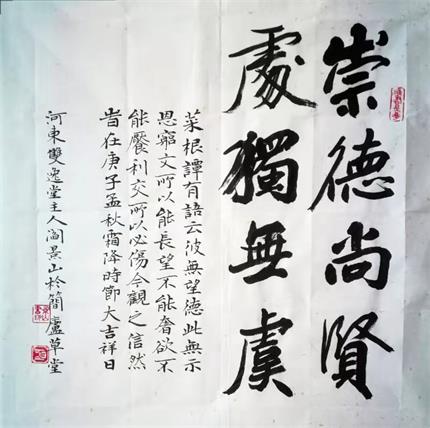 崇德尚賢
處獨無虞
菜根譚有語云波無望德此無示
恩窮交所以能長望不能奢欲不
能饜利交所以必傷今觀之信然
旹在庚子孟秋霜降時節大吉祥日
河東雙逸堂主人閻景山於簡廬草堂